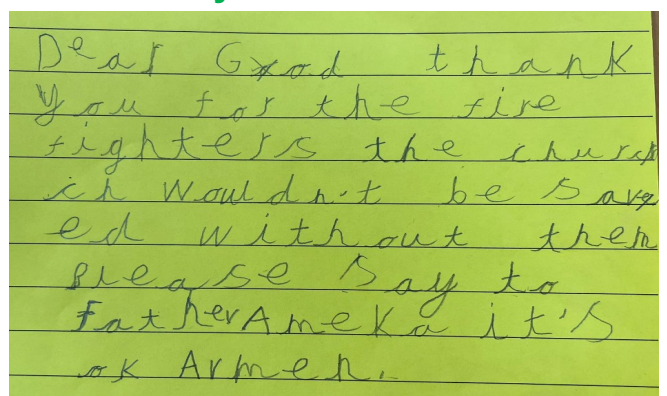 Dear God thank
you for the fire
fighters the church
ich wouldn't be save
ed without them
please say to
Father Ameka it's
ok Armen.